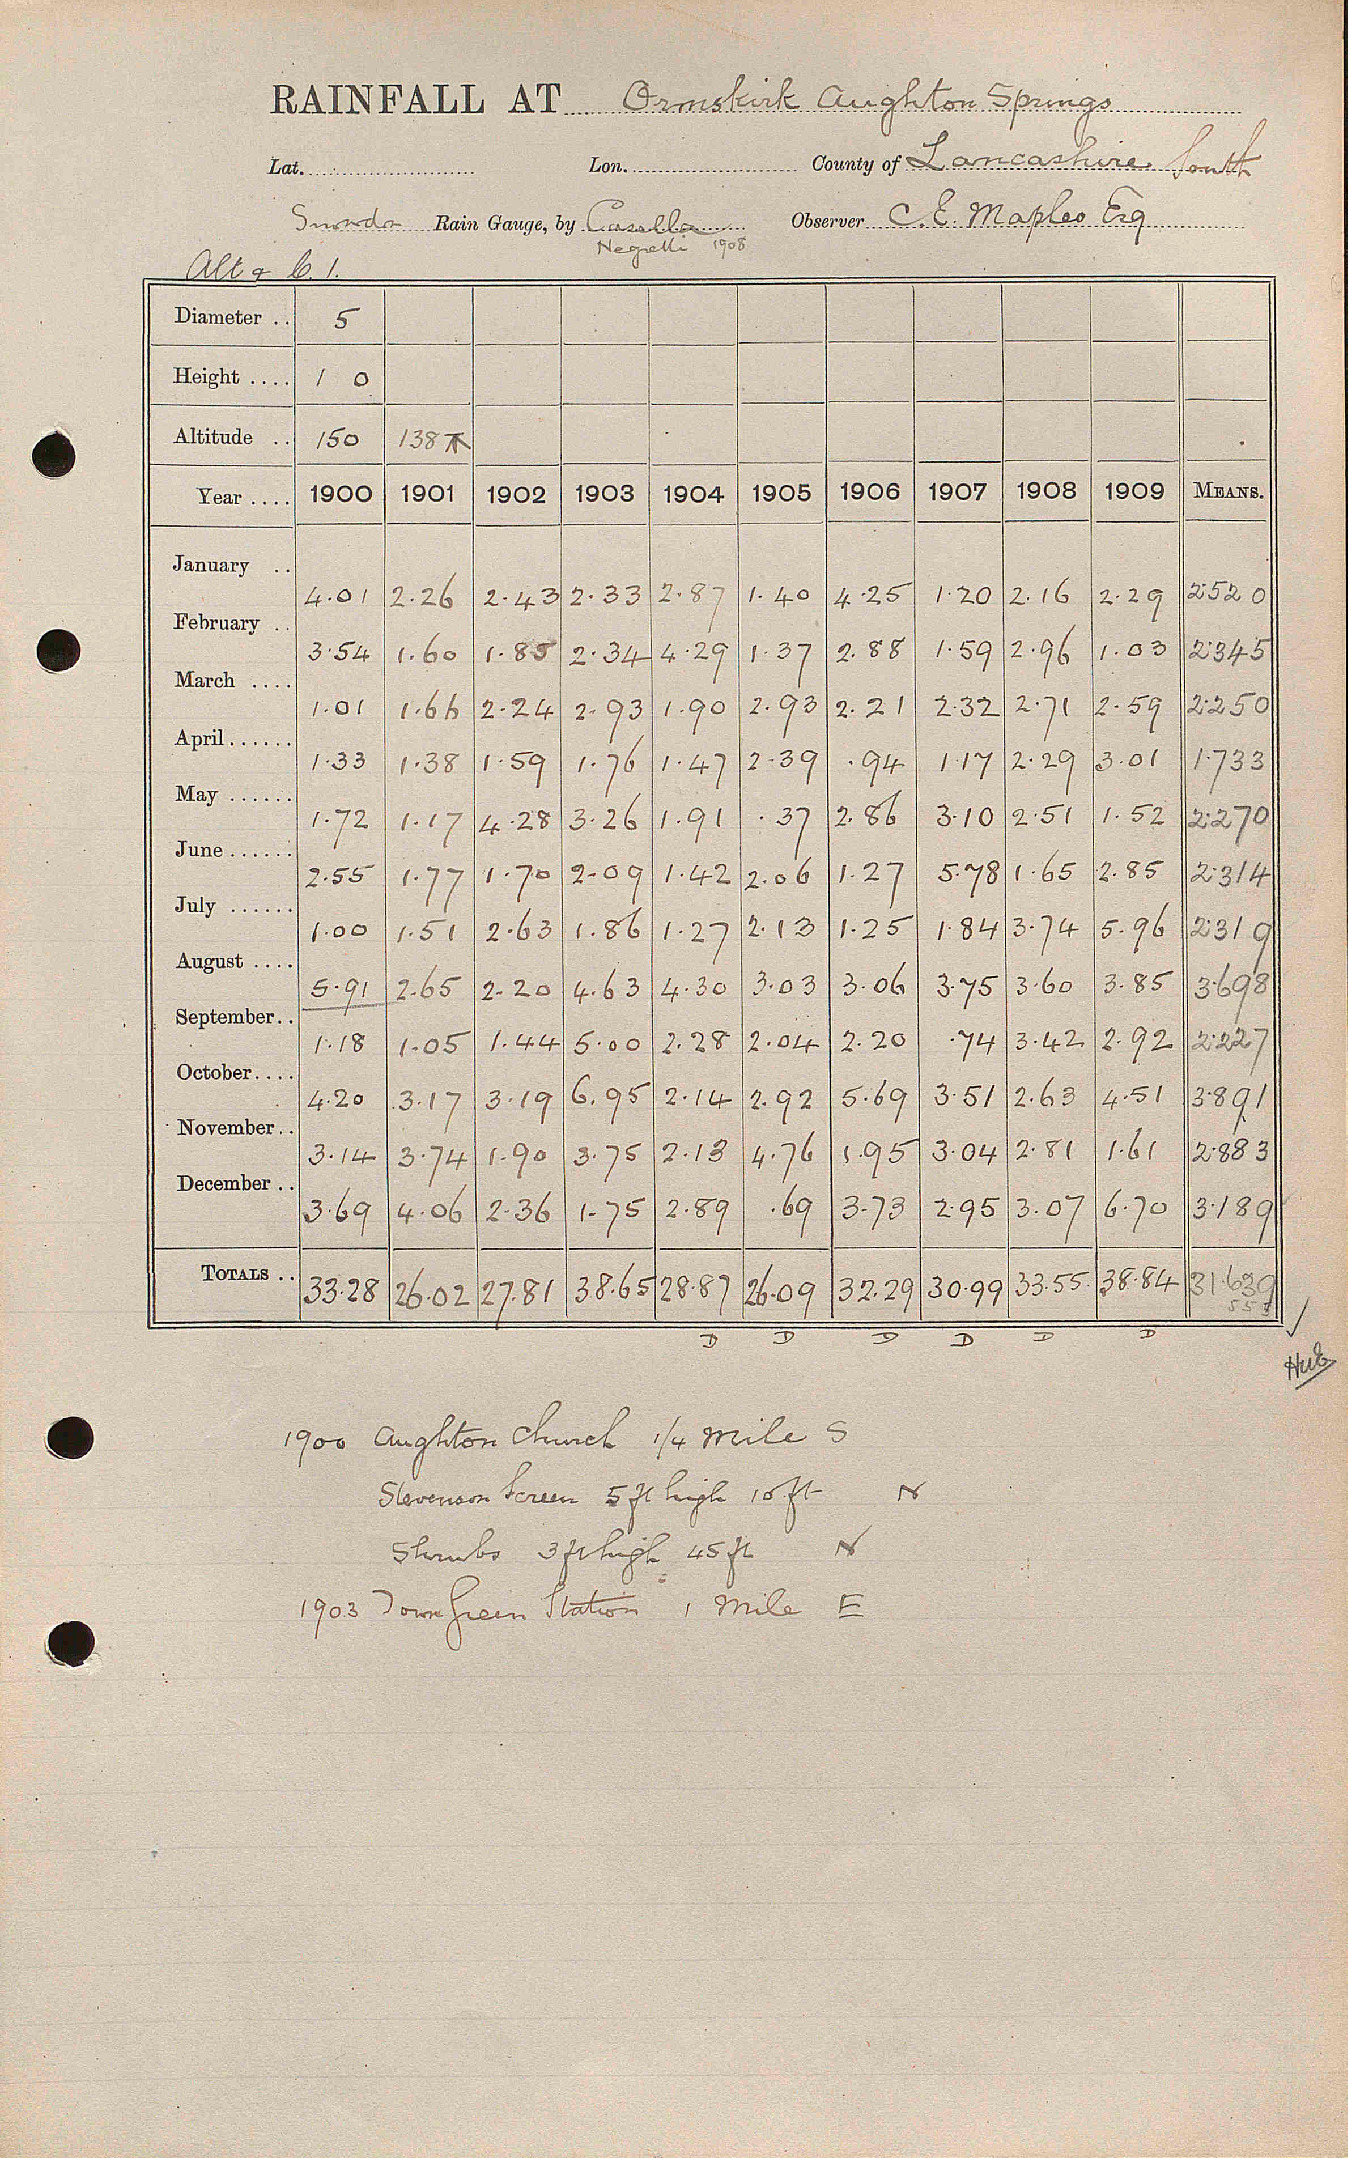 RAINFALL AT Ormskirk Aughton Springs
Lat. Lon. County of Lancashire South
Snowdon Rain Gauge, by Casella Observer C. E. Maples Esq
Negretti 1908
Alt & C. 1.
Diameter .. 5
Height .... 1 0
Altitude .. 150 138
Year .... 1900 1901 1902 1903 1904 1905 1906 1907 1908 1909 MEANS.
January .. 4.01 2.26 2.43 2.33 2.87 1.40 4.25 1.20 2.16 2.29 2.520
February .. 3.54 1.60 1.85 2.34 4.29 1.37 2.88 1.59 2.96 1.03 2.345
March .... 1.01 1.66 2.24 2.93 1.90 2.93 2.21 2.32 2.71 2.59 2.250
April...... 1.33 1.38 1.59 1.76 1.47 2.39 .94 1.17 2.29 3.01 1.733
May ...... 1.72 1.17 4.28 3.26 1.91 .37 2.86 3.10 2.51 1.52 2.270
June...... 2.55 1.77 1.70 2.09 1.42 2.06 1.27 5.78 1.65 2.85 2.314
July ...... 1.00 1.51 2.63 1.86 1.27 2.13 1.25 1.84 3.74 5.96 2.319
August .... 5.91 2.65 2.20 4.63 4.30 3.03 3.06 3.75 3.60 3.85 3.698
September.. 1.18 1.05 1.44 5.00 2.28 2.04 2.20 .74 3.42 2.92 2.227
October.... 4.20 3.17 3.19 6.95 2.14 2.92 5.69 3.51 2.63 4.51 3.891
November.. 3.14 3.74 1.90 3.75 2.13 4.76 1.95 3.04 2.81 1.61 2.883
December .. 3.69 4.06 2.36 1.75 2.89 .69 3.73 2.95 3.07 6.70 3.189
TOTALS .. 33.28 26.02 27.81 38.65 28.87 26.09 32.29 30.99 33.55 38.84 31.639
D D D D D D
1900 Aughton Church 1/4 mile S
Stevenson Screen 5 ft high 10 ft N
Shrubs 3 ft high 45 ft N
1903 Town Green Station 1 Mile E